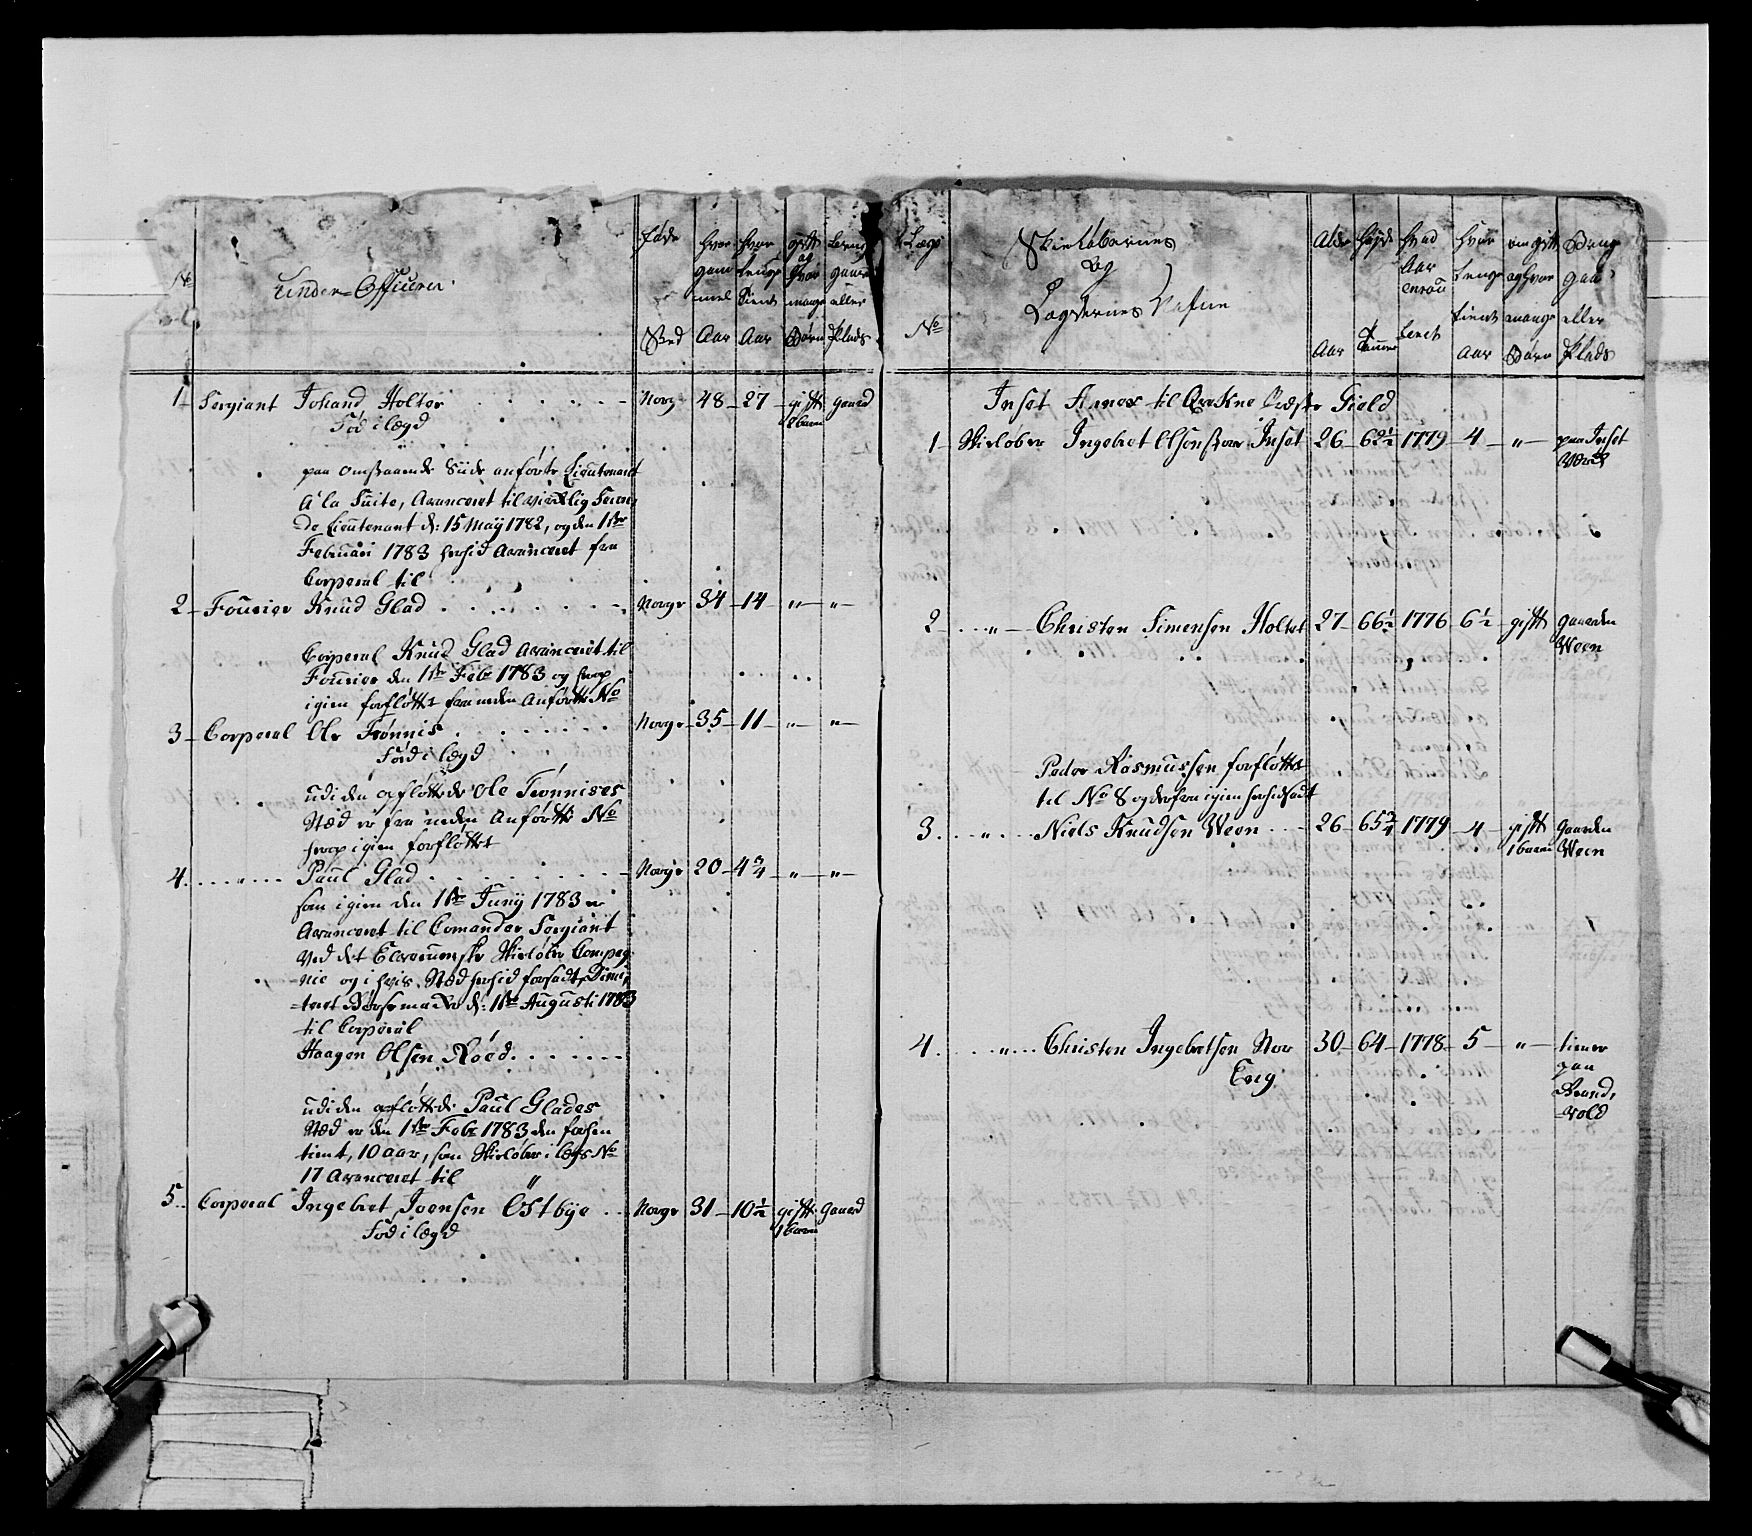 No
Under-Officerer
Føde
Sted
Hvor
gam
mel
Aar
Hvor
Lenge
tient
Aar
gift
og
Hvor
mange
Børn
gaard
eller
Plads
1 Sergiant Johand Holter Norge 48 27 gift gaard
Fød i lægd
paa omstaaende Side anførte Lieutenant
A la Suite, Avanceret til virklig Secon
de Lieutenant d: 15 May 1782, og den 1ste
Februari 1783 herhid Avanceret fra
Corporal til
2 Fourier Knud Glad Norge 34 14 " "
Corporal Knud Glad Avanceret til
Fourier den 1ste Febr 1783 og hvor
igien forfløttet fra neden Anførte No
3 Corporal Ole Trønnes Norge 35 11 " "
Fød i lægd
udi den afløttede Ole Trønneses
Stæd er fra neden Anførte No
hvor igien forfløttet
4 " Paul Glad Norge 20 4 3/4 " "
som igien den 1ste Juny 1783 er
Avanceret til Comander Sergiant
ved det Elverumske Skieløber Compag
nie og i hvis Stæd herhid forsadt Dimi
teret d: 1ste Augusti 1783
til Corporal
Haagen Olsen Roed
udi den afløttede Paul Glades
Stæd er den 1ste Febr 1783 den forhen
tient, 10 aar, som Skieløber i lægd No
17 Avanceret til
5 Corporal Ingebret Joensen Østbye Norge 31 10 1/2 gift gaard
1 barn
Fød i lægd
Lægs
No
Skieløbernes
og
Lægdernes Nafne
Alder
Aar
Høyde
Tommer
Hvad
Aar
enroll
leret
Hvor
Lenge
tient
Aar
om gift
og hvor
mange
Børn
Beng
gaa
eller
Plads
Inset Annex til Qvikne Præste Gield
1 Skieløber Ingebret Olsen Inset 26 62 1/2 1779 4 " paa Inset
Værk
2 " Christen Simensen Holtet 27 66 1/2 1776 6 1/2 gift gaarden
Ween
Peder Rasmussen forfløttet
til No 8 og derfra igien herhidsadt
3 " Niels Knudsen Ween 26 65 3/4 1779 4 gift gaarden
1 barn Ween
4 " Christen Ingebretsen Nor 30 64 1778 5 " tiener
Eng paa
Brand,
vold